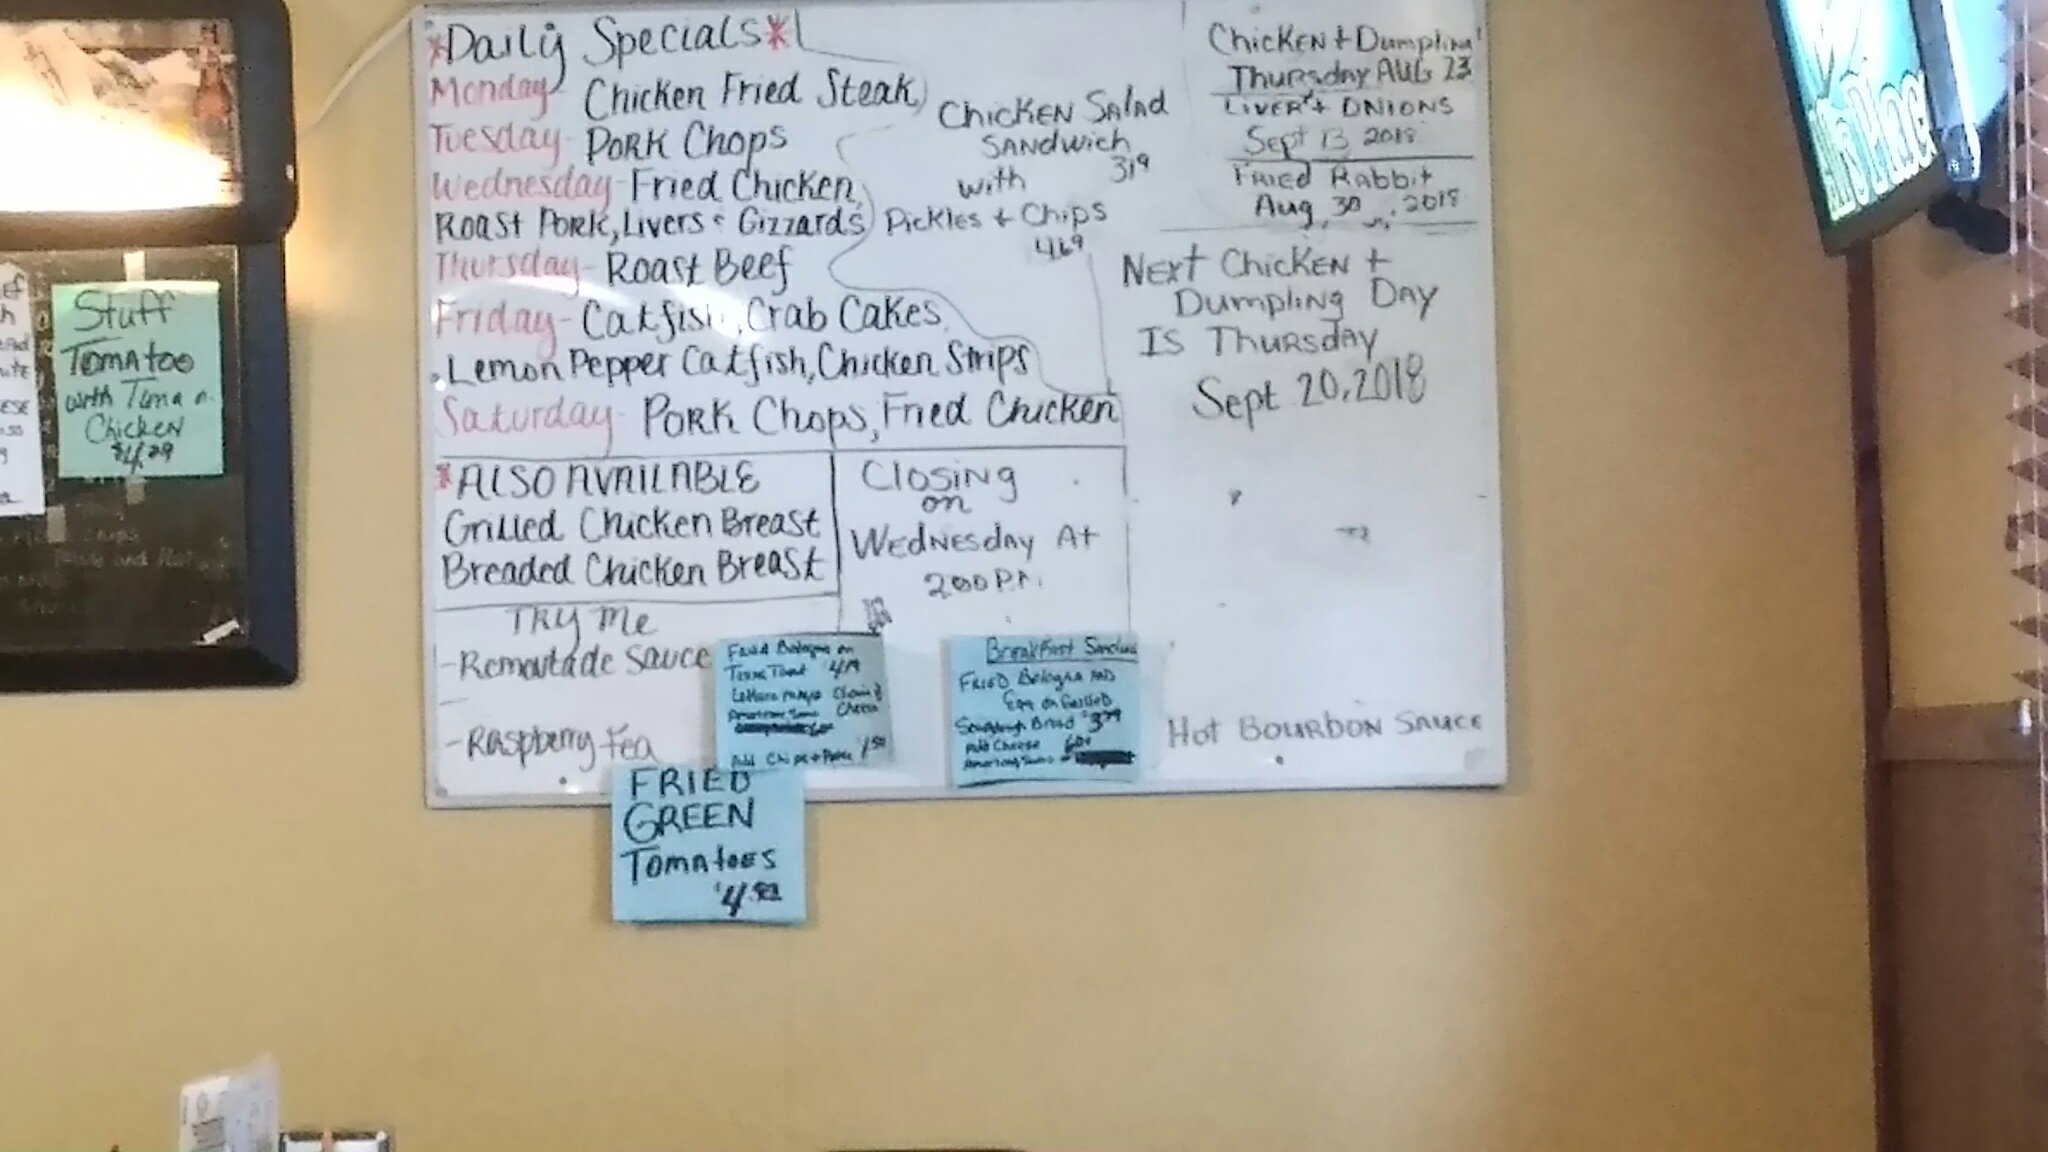 *Daily Specials*
Monday- Chicken Fried Steak,
Tuesday- Pork Chops
Wednesday- Fried Chicken,
Roast Pork, Livers & Gizzards
Thursday- Roast Beef
Friday- Catfish, Crab Cakes,
Lemon Pepper Catfish, Chicken Strips
Saturday- Pork Chops, Fried Chicken
Chicken Salad
Sandwich
3,19
with
Pickles + Chips
4.69
Chicken + Dumpling
Thursday Aug 23
Liver + Onions
Sept 13 2018
Fried Rabbit
Aug 30, 2018
Next Chicken +
Dumpling Day
Is Thursday
Sept 20, 2018
*ALSO AVAILABLE
Grilled Chicken Breast
Breaded Chicken Breast
Closing
on
Wednesday At
2:00 P.M.
Try Me
-Remoulade Sauce
-Raspberry Tea
Fried Bologna on
Texas Toast 4.19
Cheese
Add Chips + Pickle 1.50
Breakfast
Fried Bologna and
Egg on Grilled
Sourdough Bread $3.79
Add Cheese 60¢
Hot Bourbon Sauce
FRIED
GREEN
Tomatoes
$4
Stuff
Tomatoe
with Tuna or
Chicken
$4.29